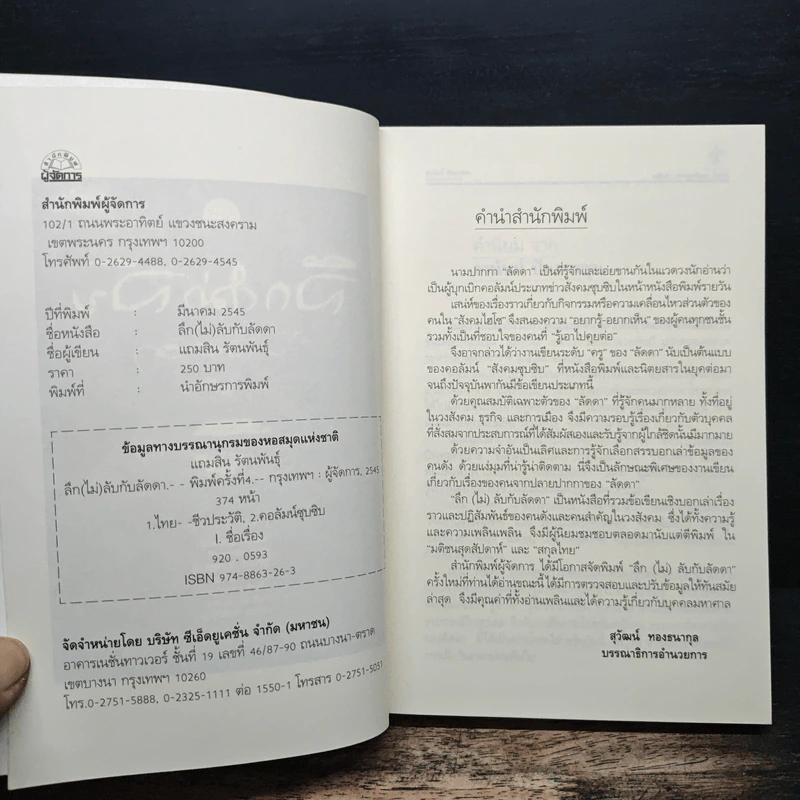 สำนักพิมพ์
ผู้จัดการ
สำนักพิมพ์ผู้จัดการ
102/1 ถนนพระอาทิตย์ แขวงชนะสงคราม
เขตพระนคร กรุงเทพฯ 10200
โทรศัพท์ 0-2629-4488, 0-2629-4545
ปีที่พิมพ์ : มีนาคม 2545
ชื่อหนังสือ : ลึก(ไม่)ลับกับลัดดา
ชื่อผู้เขียน : แถมสิน รัตนพันธุ์
ราคา : 250 บาท
พิมพ์ที่ : นำอักษรการพิมพ์
ข้อมูลทางบรรณานุกรมของหอสมุดแห่งชาติ
แถมสิน รัตนพันธุ์
ลึก(ไม่)ลับกับลัดดา.- - พิมพ์ครั้งที่4.-- กรุงเทพฯ : ผู้จัดการ, 2545
374 หน้า
1.ไทย- -ชีวประวัติ, 2.คอลัมน์ซุบซิบ
I. ชื่อเรื่อง
920 . 0593
ISBN 974-8863-26-3
จัดจำหน่ายโดย บริษัท ซีเอ็ดยูเคชั่น จำกัด (มหาชน)
อาคารเนชั่นทาวเวอร์ ชั้นที่ 19 เลขที่ 46/87-90 ถนนบางนา-ตราด
เขตบางนา กรุงเทพฯ 10260
โทร.0-2751-5888, 0-2325-1111 ต่อ 1550-1 โทรสาร 0-2751-5051
คำนำสำนักพิมพ์
นามปากกา "ลัดดา" เป็นที่รู้จักและเอ่ยขานกันในแวดวงนักอ่านว่า
เป็นผู้บุกเบิกคอลัมน์ประเภทข่าวสังคมซุบซิบในหน้าหนังสือพิมพ์รายวัน
เสน่ห์ของเรื่องราวเกี่ยวกับกิจกรรมหรือความเคลื่อนไหวส่วนตัวของ
คนใน "สังคมไฮโซ" จึงสนองความ "อยากรู้-อยากเห็น" ของผู้คนทุกชนชั้น
รวมทั้งเป็นที่ชอบใจของคนที่ "รู้เอาไปคุยต่อ"
จึงอาจกล่าวได้ว่างานเขียนระดับ "ครู" ของ "ลัดดา" นับเป็นต้นแบบ
ของคอลัมน์ "สังคมซุบซิบ" ที่หนังสือพิมพ์และนิตยสารในยุคต่อมา
จนถึงปัจจุบันพากันมีข้อเขียนประเภทนี้
ด้วยคุณสมบัติเฉพาะตัวของ "ลัดดา" ที่รู้จักคนมากหลาย ทั้งที่อยู่
ในวงสังคม ธุรกิจ และการเมือง จึงมีความรอบรู้เรื่องเกี่ยวกับตัวบุคคล
ที่สั่งสมจากประสบการณ์ที่ได้สัมผัสเองและรับรู้จากผู้ใกล้ชิดนั้นมีมากมาย
ด้วยความจำอันเป็นเลิศและการรู้จักเลือกสรรบอกเล่าข้อมูลของ
คนดัง ด้วยแง่มุมที่น่ารู้น่าติดตาม นี่จึงเป็นลักษณะพิเศษของงานเขียน
เกี่ยวกับเรื่องของคนจากปลายปากกาของ "ลัดดา"
"ลึก (ไม่) ลับกับลัดดา" เป็นหนังสือที่รวมข้อเขียนเชิงบอกเล่าเรื่อง
ราวและปฏิสัมพันธ์ของคนดังและคนสำคัญในวงสังคม ซึ่งได้ทั้งความรู้
และความเพลินเพลิน จึงมีผู้นิยมชมชอบตลอดมานับแต่ตีพิมพ์ ใน
"มติชนสุดสัปดาห์" และ "สกุลไทย"
สำนักพิมพ์ผู้จัดการ ได้มีโอกาสจัดพิมพ์ "ลึก (ไม่) ลับกับลัดดา"
ครั้งใหม่ที่ท่านได้อ่านขณะนี้ ได้มีการตรวจสอบและปรับข้อมูลให้ทันสมัย
ล่าสุด จึงมีคุณค่าที่ทั้งอ่านเพลินและได้ความรู้เกี่ยวกับบุคคลมหาศาล
สุวัฒน์ ทองธนากุล
บรรณาธิการอำนวยการ